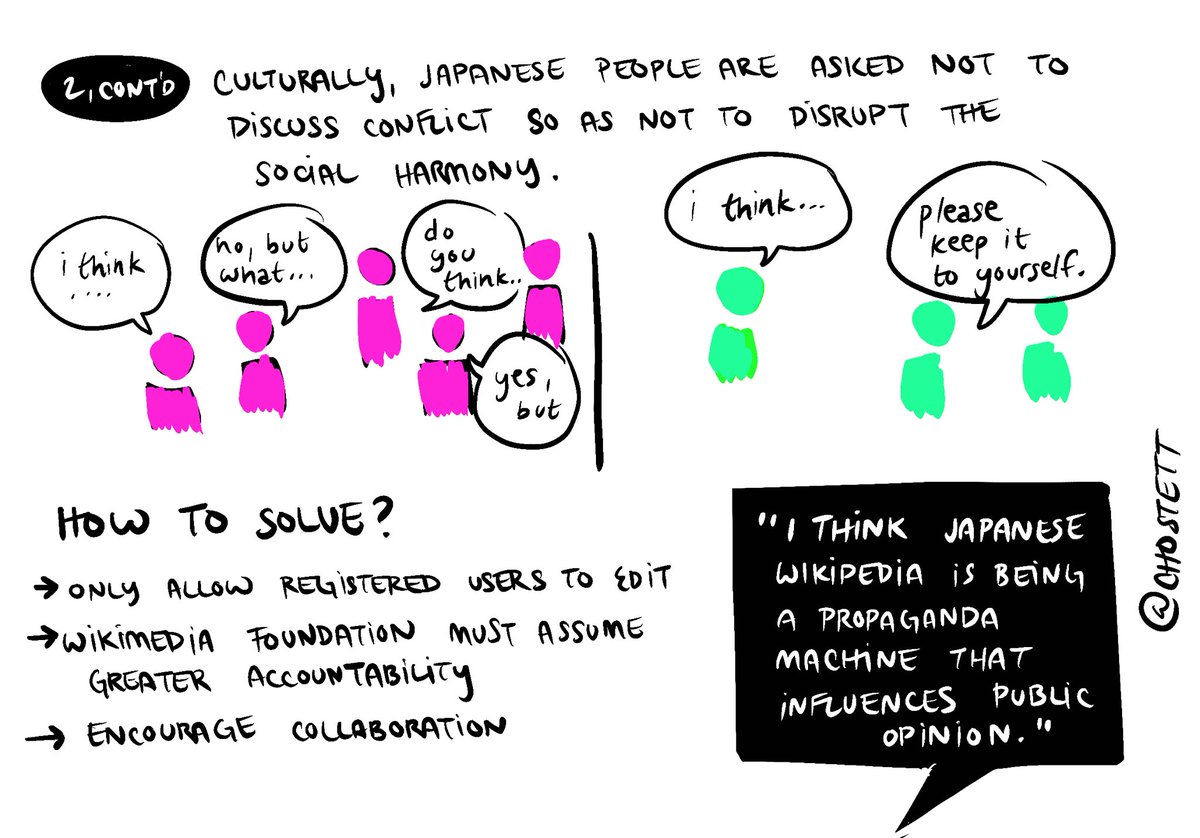 2, CONT'D
CULTURALLY, JAPANESE PEOPLE ARE ASKED NOT TO
DISCUSS CONFLICT SO AS NOT TO DISRUPT THE
SOCIAL HARMONY.
i think
.....
no, but
what...
do
you
think..
yes,
but
i think...
please
keep it
to yourself.
HOW TO SOLVE?
→ ONLY ALLOW REGISTERED USERS TO EDIT
→ WIKIMEDIA FOUNDATION MUST ASSUME
GREATER ACCOUNTABILITY
→ ENCOURAGE COLLABORATION
"I THINK JAPANESE
WIKIPEDIA IS BEING
A PROPAGANDA
MACHINE THAT
INFLUENCES PUBLIC
OPINION."
@CHOSTETT